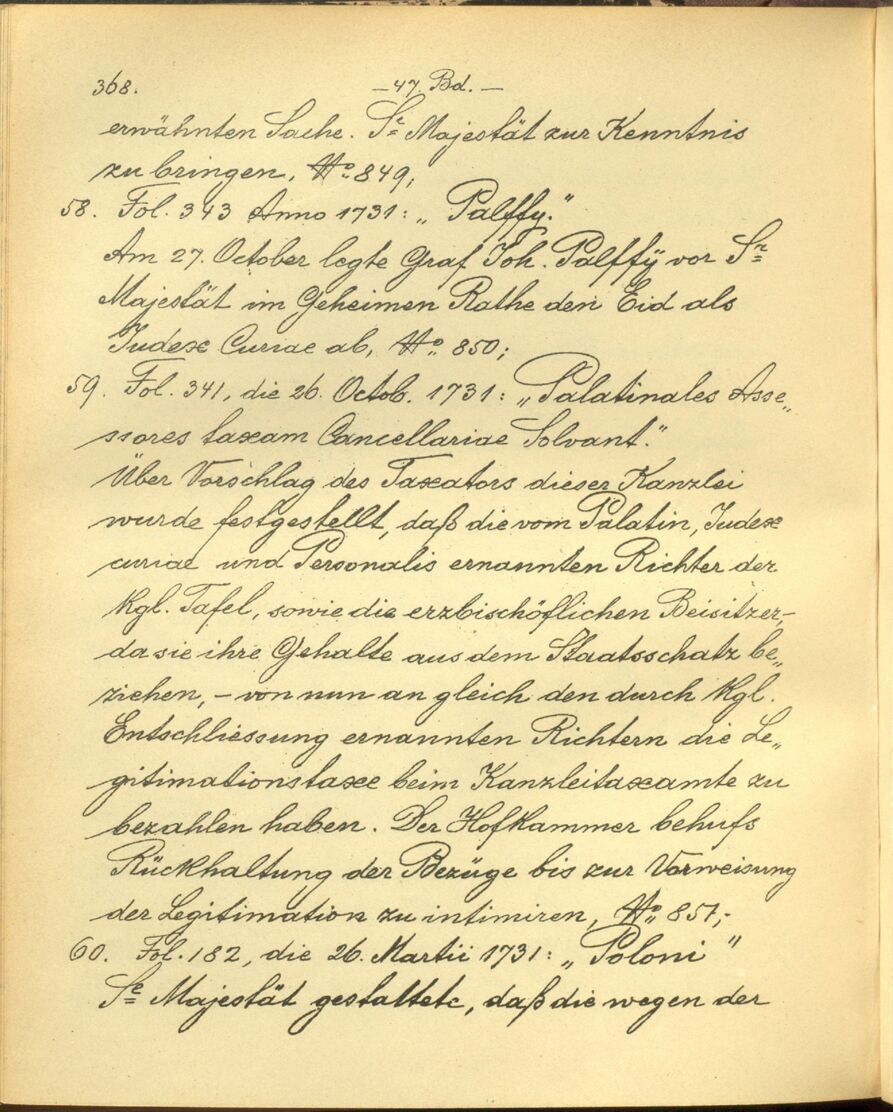 368. — 47. Bd. —
erwähnten Sache. Se Majestät zur Kenntnis
zu bringen, No 849;
58. Fol. 343 Anno 1731: „Palffy."
Am 27. October legte Graf Joh. Palffÿ vor Sr
Majestät im Geheimen Rathe den Eid als
Judex Curiae ab, No 850;
59. Fol. 341, die 26. Octob. 1731: „Palatinales Asse„
ssores taxam Cancellariae Solvant."
Über Vorschlag des Taxators dieser Kanzlei
wurde festgestellt, daß die vom Palatin, Judex
curiae und Personalis ernannten Richter der
Kgl. Tafel, sowie die erzbischöflichen Beisitzer,–
da sie ihre Gehalte aus dem Staatsschatz be„
ziehen, – von nun an gleich den durch Kgl.
Entschliessung ernannten Richtern die Le„
gitimationstaxe beim Kanzleitaxamte zu
bezahlen haben. Der Hofkammer behufs
Rückhaltung der Bezüge bis zur Vorweisung
der Legitimation zu intimiren, No 851;-
60. Fol. 182, die 26. Martii 1731: „Poloni"
Se Majestät gestattete, daß die wegen der